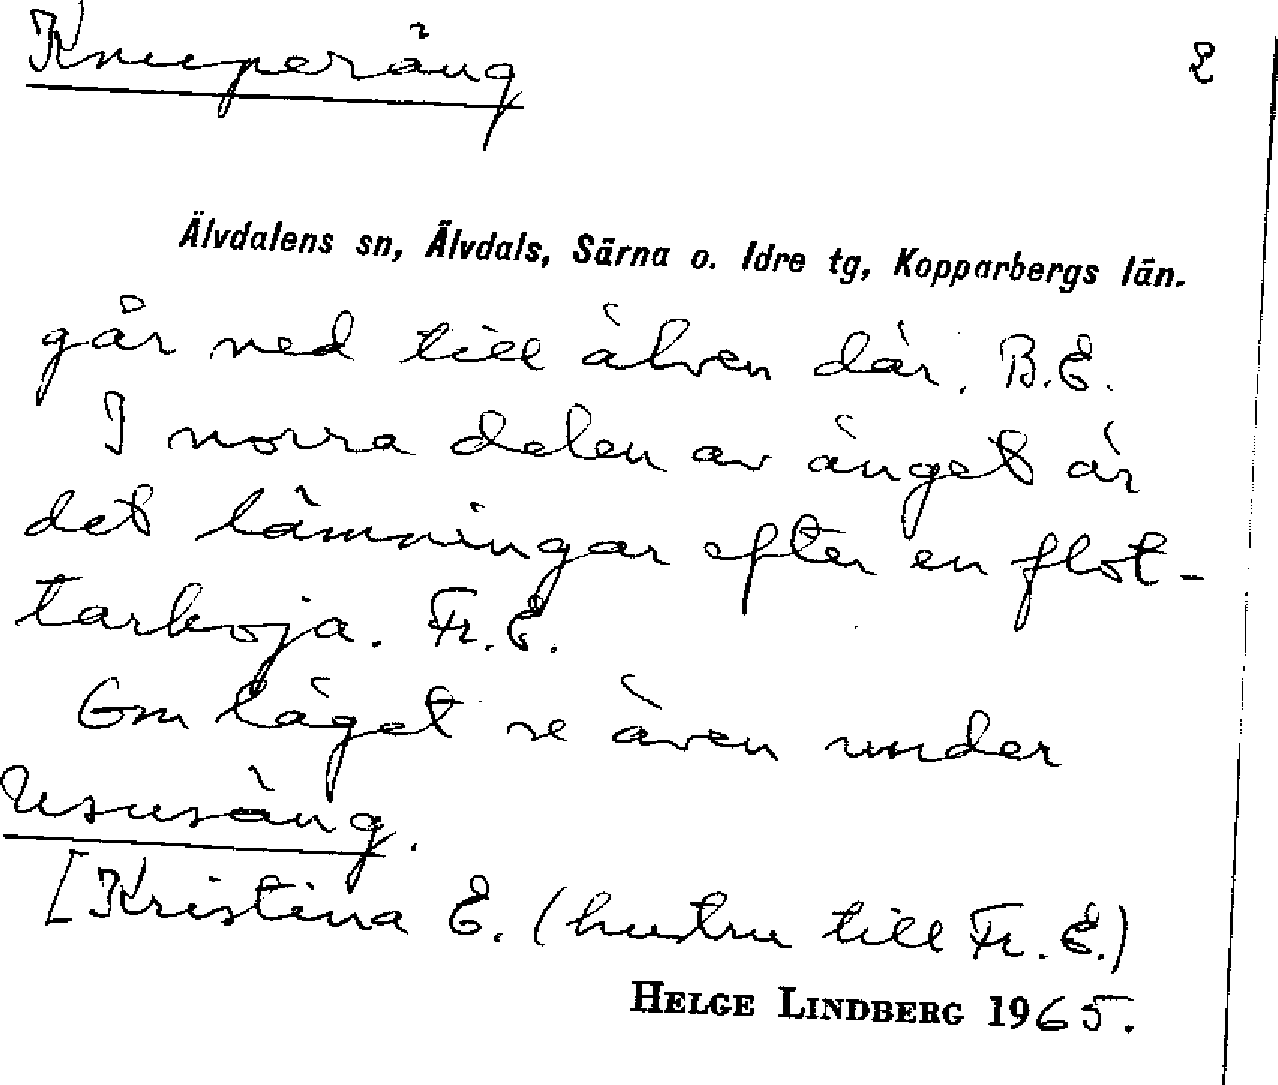 Knuperäng
2
Älvdalens sn, Älvdals, Särna o. Idre tg, Kopparbergs län.
går ned till älven där. B.E.
I norra delen av änget är
det lämningar efter en flot-
tarkoja. Fr. E.
Om läget se även under
Ususäng.
[Kristina E. (hustru till Fr. E.)
HELGE LINDBERG 1965.